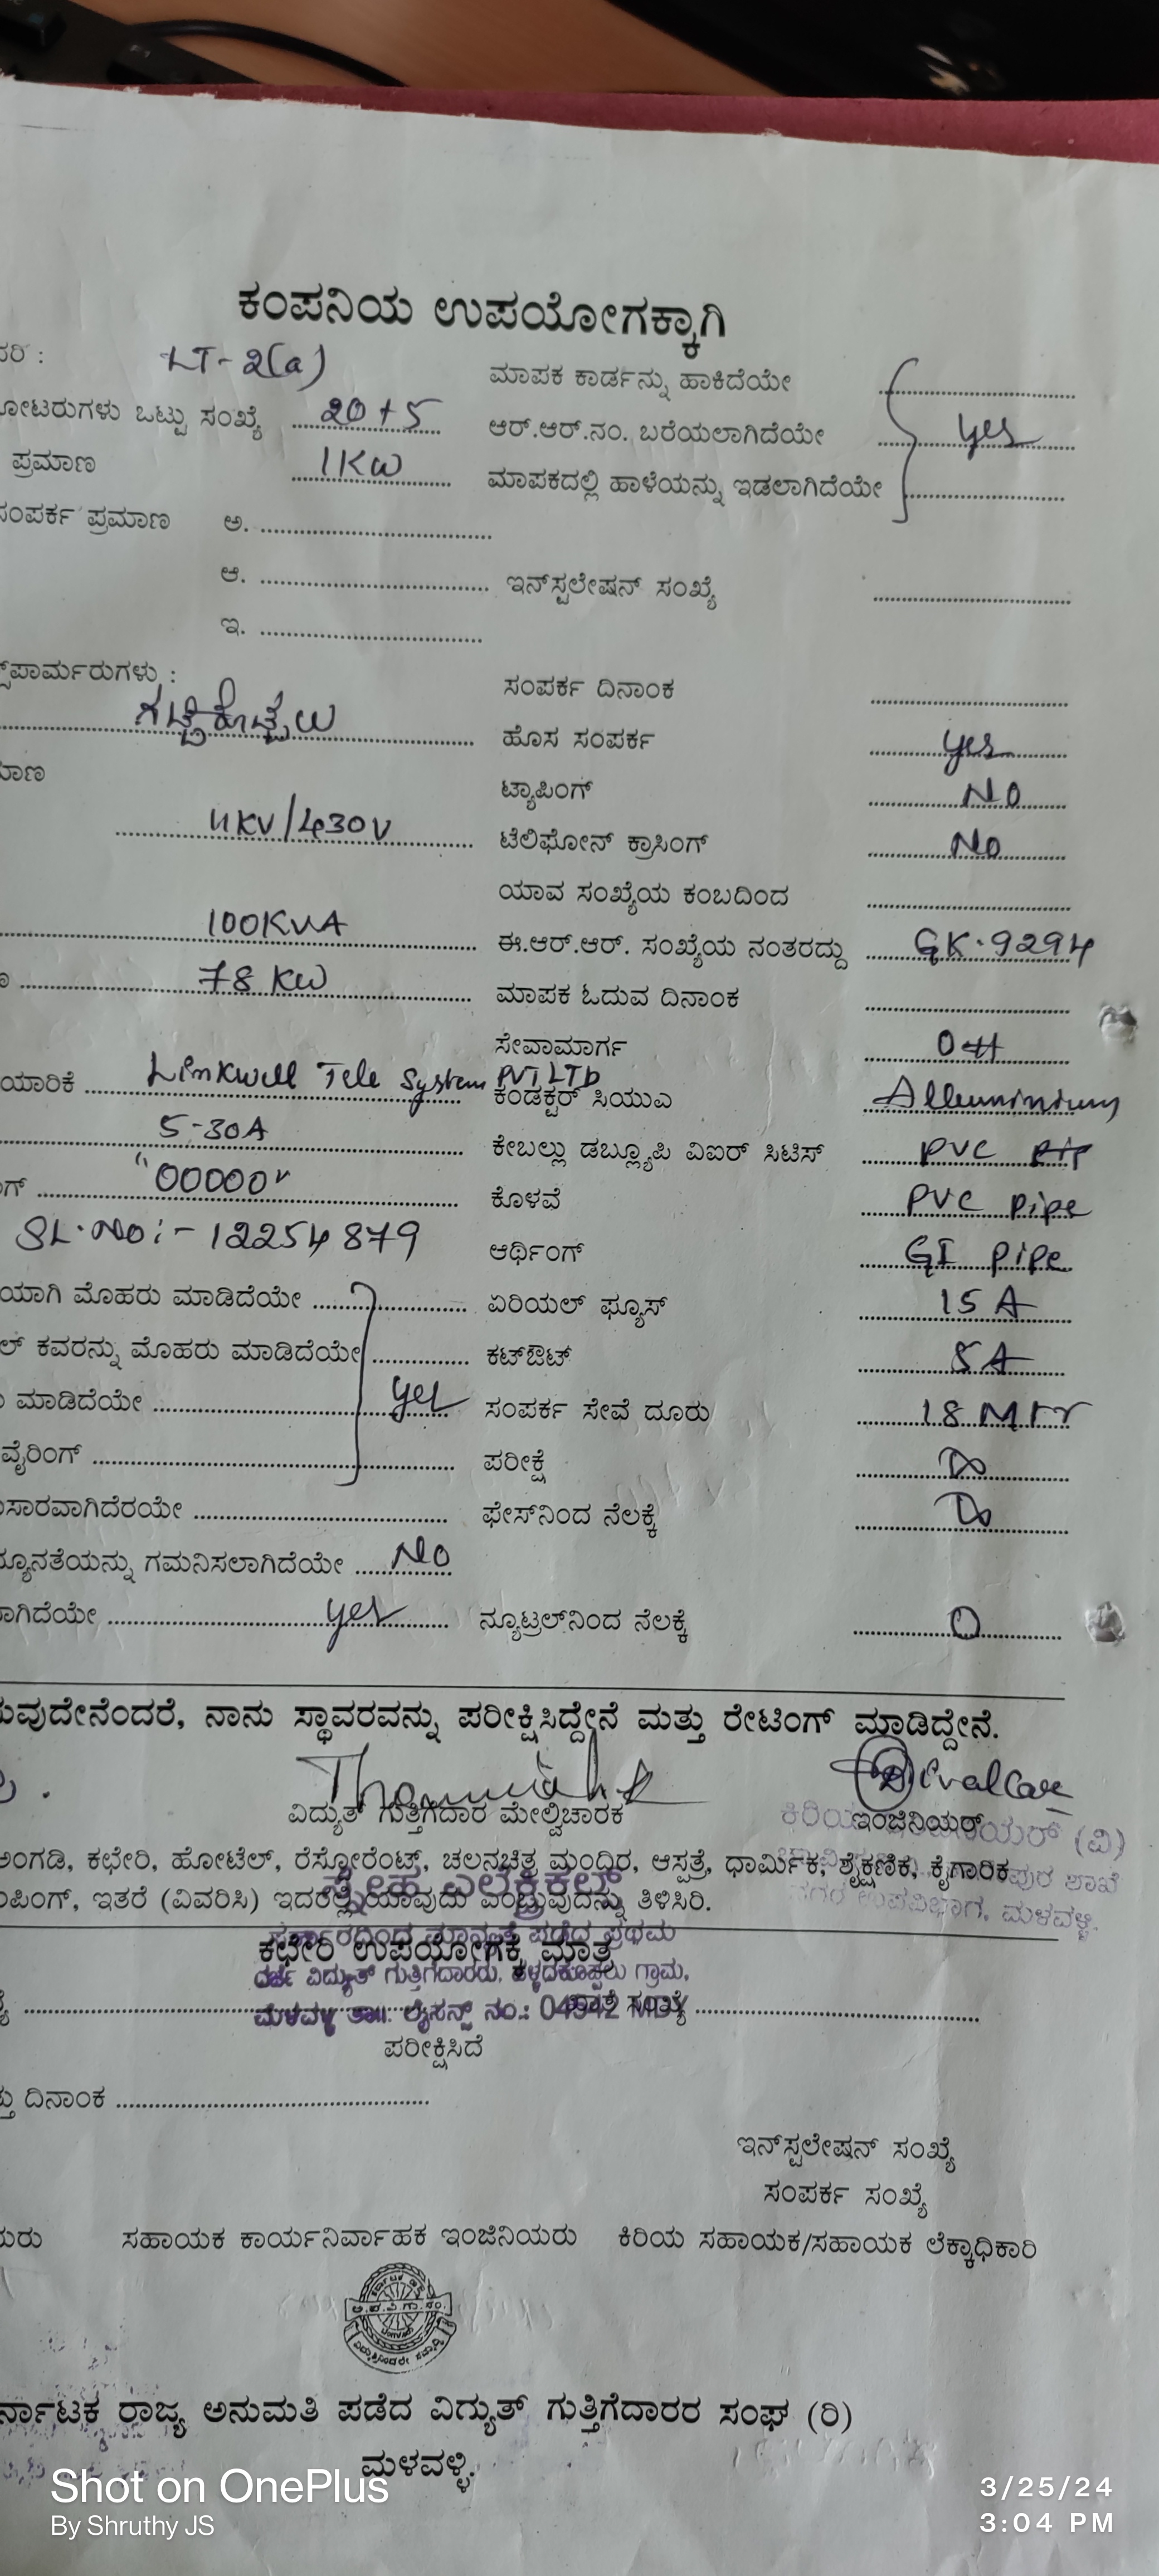 ಕಂಪನಿಯ ಉಪಯೋಗಕ್ಕಾಗಿ
ದರಿ : LT-2(a) ಮಾಪಕ ಕಾರ್ಡನ್ನು ಹಾಕಿದೆಯೇ
ಮೋಟರುಗಳು ಒಟ್ಟು ಸಂಖ್ಯೆ 20+5 ಆರ್.ಆರ್.ನಂ. ಬರೆಯಲಾಗಿದೆಯೇ yes
ಪ್ರಮಾಣ 1KW ಮಾಪಕದಲ್ಲಿ ಹಾಳೆಯನ್ನು ಇಡಲಾಗಿದೆಯೇ
ಸಂಪರ್ಕ ಪ್ರಮಾಣ ಅ.
ಆ. ಇನ್‌ಸ್ಟಲೇಷನ್ ಸಂಖ್ಯೆ
ಇ.
ಸ್‌ಪಾರ್ಮರುಗಳು : ಸಂಪರ್ಕ ದಿನಾಂಕ
ಹೊಸ ಸಂಪರ್ಕ yes
ಮಾಣ ಟ್ಯಾಪಿಂಗ್ NO
11KV/430V ಟೆಲಿಫೋನ್ ಕ್ರಾಸಿಂಗ್ No
ಯಾವ ಸಂಖ್ಯೆಯ ಕಂಬದಿಂದ
100KVA ಈ.ಆರ್.ಆರ್. ಸಂಖ್ಯೆಯ ನಂತರದ್ದು GK.9294
78 KW ಮಾಪಕ ಓದುವ ದಿನಾಂಕ
ಸೇವಾಮಾರ್ಗ OH
ಯಾರಿಕೆ Linkwell Tele System PVT LTD ಕಂಡಕ್ಟರ್ ಸಿಯುಎ Alleuminium
5-30A ಕೇಬಲ್ಲು ಡಬ್ಲ್ಯೂಪಿ ವಿಐರ್ ಸಿಟಿಸ್ PVC
ಗ್ "00000" ಕೊಳವೆ PVC pipe
SL.No:- 12254879 ಆರ್ಥಿಂಗ್ GI pipe
ಯಾಗಿ ಮೊಹರು ಮಾಡಿದೆಯೇ ಏರಿಯಲ್ ಫ್ಯೂಸ್ 15 A
ಲ್ ಕವರನ್ನು ಮೊಹರು ಮಾಡಿದೆಯೇ ಕಟ್‌ಔಟ್ 5A
ಮಾಡಿದೆಯೇ yes ಸಂಪರ್ಕ ಸೇವೆ ದೂರು 18 Mtr
ವೈರಿಂಗ್ ಪರೀಕ್ಷೆ
ುಸಾರವಾಗಿದೆರಯೇ ಫೇಸ್‌ನಿಂದ ನೆಲಕ್ಕೆ
ನ್ಯೂನತೆಯನ್ನು ಗಮನಿಸಲಾಗಿದೆಯೇ NO
ಾಗಿದೆಯೇ yes ನ್ಯೂಟ್ರಲ್‌ನಿಂದ ನೆಲಕ್ಕೆ O
ುವುದೇನೆಂದರೆ, ನಾನು ಸ್ಥಾವರವನ್ನು ಪರೀಕ್ಷಿಸಿದ್ದೇನೆ ಮತ್ತು ರೇಟಿಂಗ್ ಮಾಡಿದ್ದೇನೆ.
ವಿದ್ಯುತ್ ಗುತ್ತಿಗೆದಾರ ಮೇಲ್ವಿಚಾರಕ ಇಂಜಿನಿಯರ್
ಅಂಗಡಿ, ಕಛೇರಿ, ಹೋಟೆಲ್, ರೆಸ್ಟೋರೆಂಟ್, ಚಲನಚಿತ್ರ ಮಂದಿರ, ಆಸ್ಪತ್ರೆ, ಧಾರ್ಮಿಕ, ಶೈಕ್ಷಣಿಕ, ಕೈಗಾರಿಕ
ಂಪಿಂಗ್, ಇತರೆ (ವಿವರಿಸಿ) ಇದರಲ್ಲಿ ಯಾವುದು ಎಂಬುವುದನ್ನು ತಿಳಿಸಿರಿ.
ಉಪವಿಭಾಗ, ಮಳವಳ್ಳಿ.
ಕಛೇರಿ ಉಪಯೋಗಕ್ಕೆ ಮಾತ್ರ
ದರ್ಜೆ ವಿದ್ಯುತ್ ಗುತ್ತಿಗೆದಾರರು, ಗ್ರಾಮ,
ಮಳವಳ್ಳಿ ತಾ॥. ಲೈಸನ್ಸ್ ನಂ.: MDY
ಪರೀಕ್ಷಿಸಿದೆ
ತ್ತು ದಿನಾಂಕ
ಇನ್‌ಸ್ಟಲೇಷನ್ ಸಂಖ್ಯೆ
ಸಂಪರ್ಕ ಸಂಖ್ಯೆ
ಯರು ಸಹಾಯಕ ಕಾರ್ಯನಿರ್ವಾಹಕ ಇಂಜಿನಿಯರು ಕಿರಿಯ ಸಹಾಯಕ/ಸಹಾಯಕ ಲೆಕ್ಕಾಧಿಕಾರಿ
ರ್ನಾಟಕ ರಾಜ್ಯ ಅನುಮತಿ ಪಡೆದ ವಿದ್ಯುತ್ ಗುತ್ತಿಗೆದಾರರ ಸಂಘ (ರಿ)
ಮಳವಳ್ಳಿ.
Shot on OnePlus
By Shruthy JS
3/25/24
3:04 PM